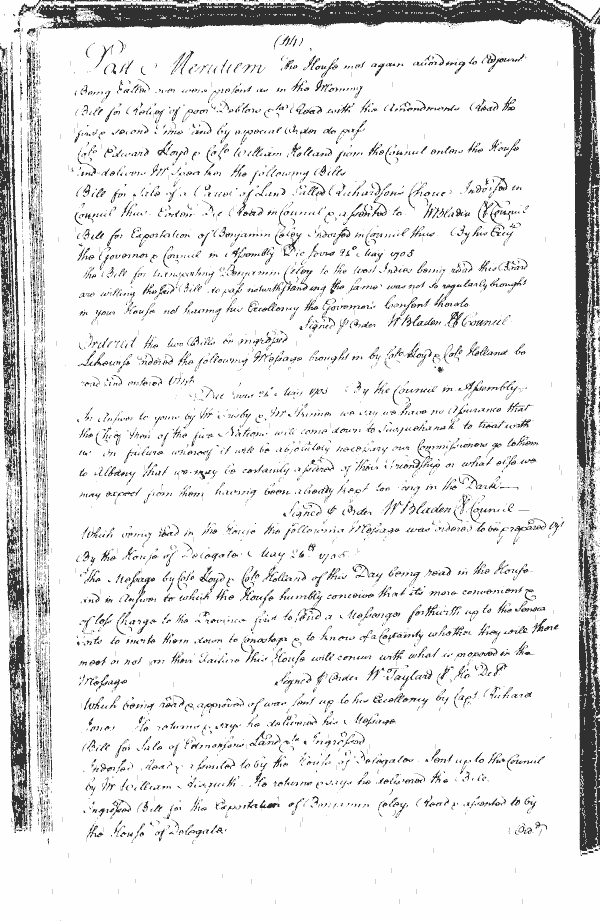 (44)
Post Meridiem The House met again according to Adjournt
Being Called over were present as in the Morning
Bill for Relief of poor Debtors &ca Read with the Amendments Read the
first & second time and by a special Order do pass
Colo Edward Lloyd & Colo William Holland from the Council enters the House
and delivers Mr Speaker the following Bills
Bill for Sale of a Parcel of Land Called Richardson's Endorsed in
Council thus Eodem Die Read in Council & assented to W Bladen Cl Council
Bill for Exportation of Benjamin Celey Endorsed in Council thus By his Excy
the Governor & Council in Assembly Die Jovis 24o May 1705
the Bill for transporting Benjamin Celey to the West Indies being read this Board
are willing the said Bill do pass notwithstanding the same was not so regularly brought
in your House not having his Excellency the Governor's Consent thereto
Signed p Order W Bladen Cl Council
Ordered the two Bills be ingrossed
Likewise ordered the following Message brought in by Colo Lloyd & Colo Holland be
read and entered Vizt
Die Jovis 24o May 1705 By the Council in Assembly
In Answer to yours by Mr & Mr we say we have no Assurance that
the Chief Men of the five Nations will come down to Susquehanah to treat with
us On failure whereof it will be absolutely necessary our Commissioners go to them
to Albany that we may be certainly assured of their Friendship or what else we
may expect from them having been already kept too long in the Dark
Signed p Order W Bladen Cl Council
Which being read in the House the following Message was ordered to be prepared Vizt
By the House of Delegates May 24th 1705
The Message by Colo Lloyd & Colo Holland of this Day being read in the House
and in Answer to which the House humbly conceives that it's more convenient &
of less Charge to the Province first to send a Messenger forthwith up to the Seneca
to invite them down to & to know of a Certainty whether they will there
meet or not on their Failure this House will concur with what is proposed in the
Message Signed p Order W Taylard Cl Ho Delts
Which being read & approved of was sent up to his Excellency by Capt Richard
Jones He returns & says he delivered his Message
Bill for Sale of Edmondsons Land &ca Ingrossed
Endorsed Read & assented to by the House of Delegates Sent up to the Council
by Mr William He returns & says he delivered the Bill
Ingrossed Bill for the Exportation of Benjamin Celey Read & assented to by
the House of Delegates